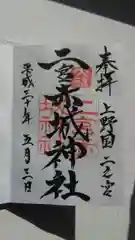 奉拝 上野国 二之宮
二宮赤城神社
平成二十年 五月三日